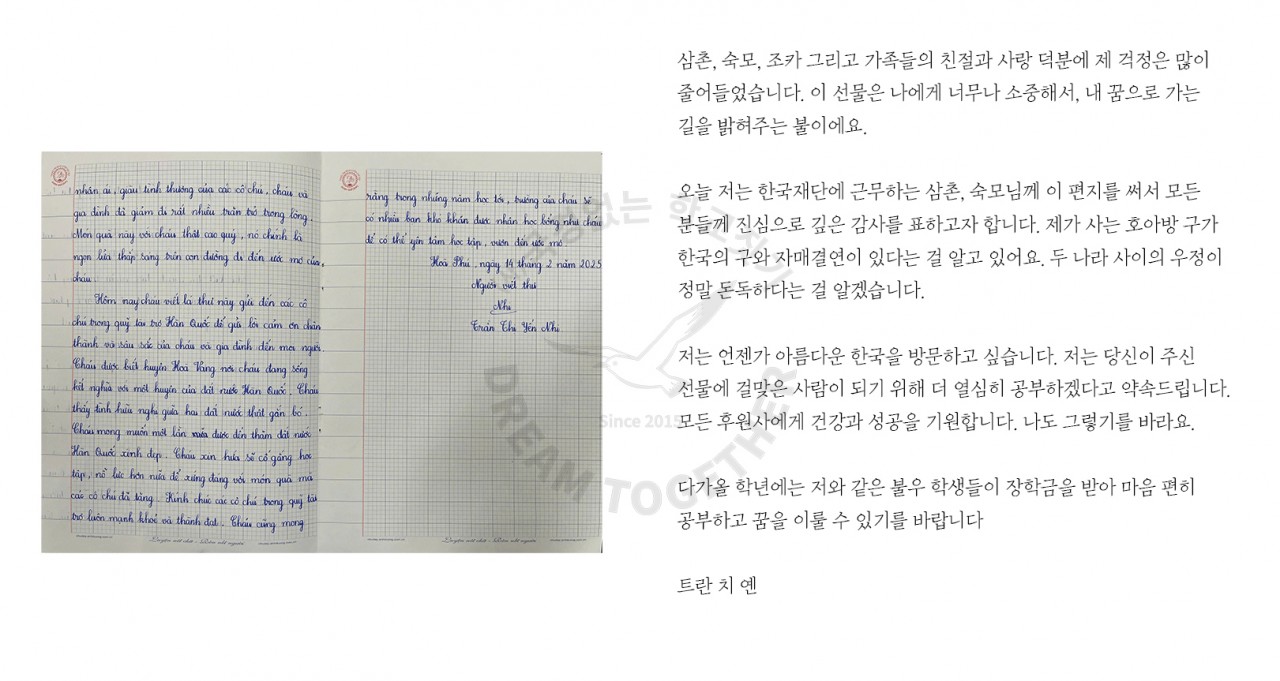 nhân ái, giàu tình thương của các cô chú, cháu và
gia đình đã giảm đi rất nhiều trăn trở trong lòng.
Món quà này với cháu thật cao quý, nó chính là
ngọn lửa thắp sáng trên con đường đi đến ước mơ của
cháu.
Hôm nay cháu viết lá thư này gửi đến các cô
chú trong quỹ tài trợ Hàn Quốc để gửi lời cảm ơn chân
thành và sâu sắc của cháu và gia đình đến mọi người.
Cháu được biết huyện Hoà Vang nơi cháu đang sống
kết nghĩa với một huyện của đất nước Hàn Quốc. Cháu
thấy tình hữu nghị giữa hai đất nước thật gắn bó.
Cháu mong muốn một lần được đến thăm đất nước
Hàn Quốc xinh đẹp. Cháu xin hứa sẽ cố gắng học
tập, nỗ lực hơn nữa để xứng đáng với món quà mà
các cô chú đã tặng. Kính chúc các cô chú trong quỹ tài
trợ luôn mạnh khoẻ và thành đạt. Cháu cũng mong
rằng trong những năm học tới, trường của cháu sẽ
có nhiều bạn khó khăn được nhận học bổng như cháu
để có thể yên tâm học tập, vươn đến ước mơ.
Hoà Phú, ngày 14 tháng 2 năm 2025
Người viết thư
Nhi
Trần Thị Yến Nhi
삼촌, 숙모, 조카 그리고 가족들의 친절과 사랑 덕분에 제 걱정은 많이
줄어들었습니다. 이 선물은 나에게 너무나 소중해서, 내 꿈으로 가는
길을 밝혀주는 불이에요.
오늘 저는 한국재단에 근무하는 삼촌, 숙모님께 이 편지를 써서 모든
분들께 진심으로 깊은 감사를 표하고자 합니다. 제가 사는 호아방 구가
한국의 구와 자매결연이 있다는 걸 알고 있어요. 두 나라 사이의 우정이
정말 돈독하다는 걸 알겠습니다.
저는 언젠가 아름다운 한국을 방문하고 싶습니다. 저는 당신이 주신
선물에 걸맞은 사람이 되기 위해 더 열심히 공부하겠다고 약속드립니다.
모든 후원사에게 건강과 성공을 기원합니다. 나도 그렇기를 바라요.
다가올 학년에는 저와 같은 불우 학생들이 장학금을 받아 마음 편히
공부하고 꿈을 이룰 수 있기를 바랍니다
트란 치 옌
Since 2015
DREAM TOGETHER